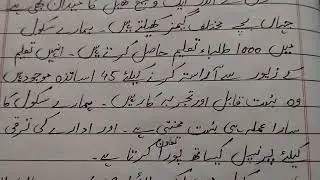 کے اندر ایک وسیع کھیل کا میدان بھی ہے
جہاں بچے مختلف گیمز کھیلتے ہیں۔ ہمارے سکول
میں 1000 طلباء تعلیم حاصل کرتے ہیں۔ انہیں تعلیم
کے زیور سے آراستہ کرنے کیلئے 45 اساتذہ موجود ہیں
وہ بہت قابل اور تجربہ کار ہیں۔ ہمارے سکول کا
سارا عملہ ہی بہت محنتی ہے۔ اور ادارے کی ترقی
کیلئے پرنسپل کیساتھ پورا تعاون کرتا ہے۔